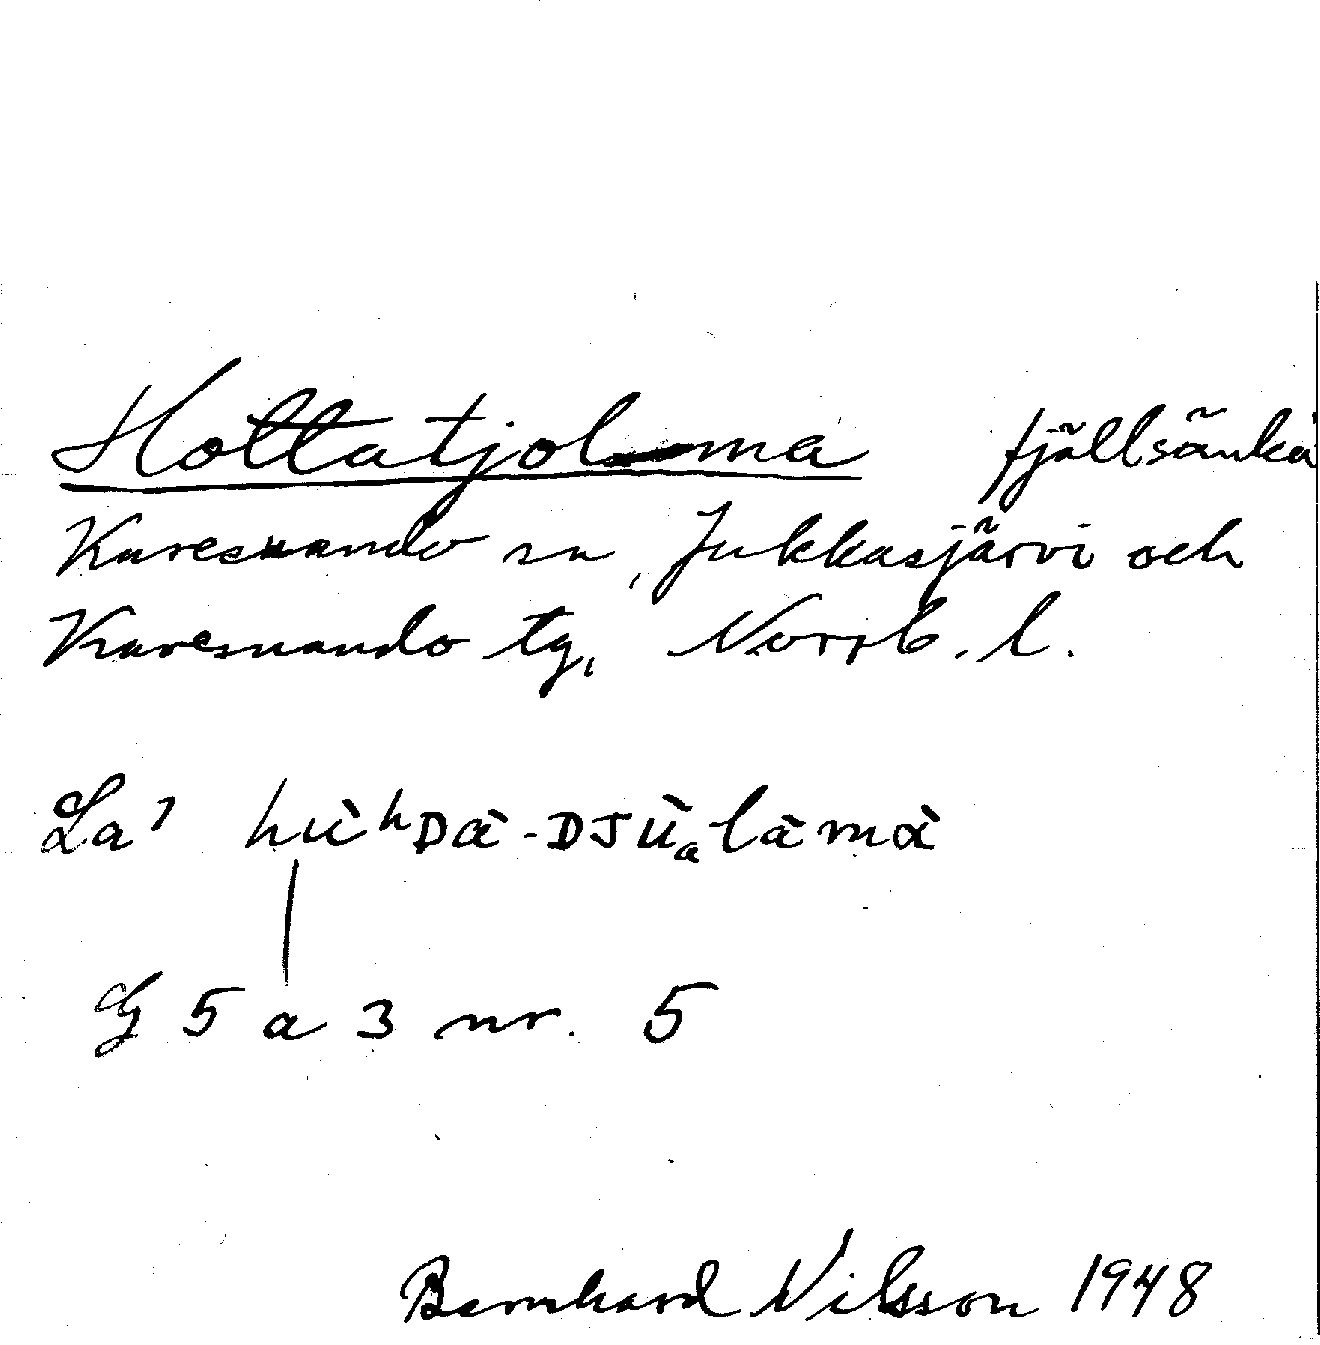 Hottatjolma fjällsänka
Karesuando sn, Jukkasjärvi och
Karesuando tg, Norrb. l.
La' hùʰDà-DJùₐlàmà
G 5 a 3 nr. 5
Bernhard Nilsson 1948